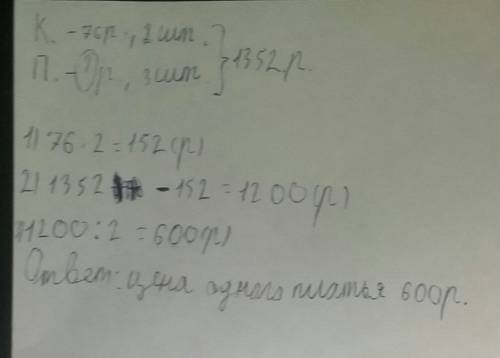 К. - 76р., 2 шт.
П. - ?р., 3 шт. } 1352 р.
1) 76 · 2 = 152(р)
2) 1352 - 152 = 1200(р)
1200 : 2 = 600(р)
Ответ: цена одного платья 600р.